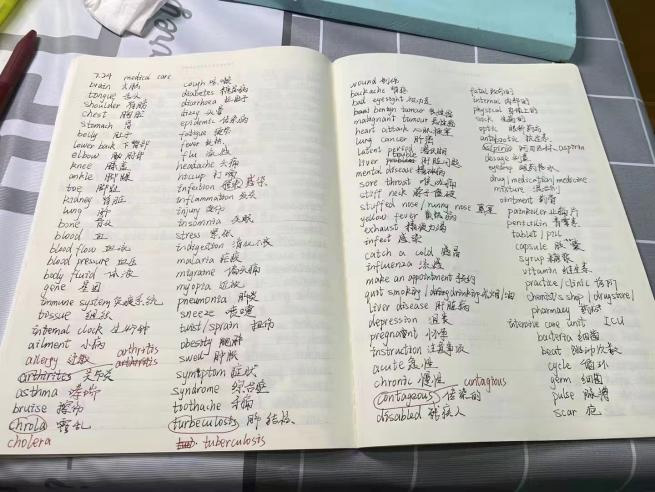 7.24 medical care
brain 大脑
tongue 舌头
shoulder 肩膀
chest 胸腔
stomach 胃
belly 肚子
lower back 下背部
elbow 胳膊肘
knee 膝盖
ankle 脚踝
toe 脚趾
kidney 肾脏
lung 肺
bone 骨头
blood 血
blood flow 血流
blood pressure 血压
body fluid 体液
gene 基因
immune system 免疫系统
tissue 组织
internal clock 生物钟
ailment 小病
allergy 过敏 arthritis
arthritis 关节炎
asthma 哮喘
bruise 擦伤
chrola 霍乱
cholera
cough 咳嗽
diabetes 糖尿病
diarrhoea 拉肚子
dizzy 头晕
epidemic 传染病
fatigue 疲劳
fever 发热
flu 流感
headache 头痛
hiccup 打嗝
infection 感染
inflammation 发炎
injury 受伤
insomnia 失眠
stress 紧张
indigestion 消化不良
malaria 疟疾
migraine 偏头痛
myopia 近视
pneumonia 肺炎
sneeze 喷嚏
twist/sprain 扭伤
obesity 肥胖
swell 肿胀
symptom 症状
syndrome 综合症
toothache 牙痛
turbeculosis 肺结核
tuberculosis
wound 创伤
backache 背痛
bad eyesight 视力差
malignant tumour 恶性瘤
heart attack 心脏病
lung cancer 肺癌
latent period 潜伏期
liver trouble 肝脏问题
mental disease 精神病
sore throat 喉咙痛
stiff neck 脖子僵硬
stuffed nose/runny nose
yellow fever 黄热病
exhaust 精疲力竭
infect 感染
catch a cold 感冒
influenza 流感
make an appointment 预约
quit smoking/drinking
liver disease 肝脏病
depression 沮丧
pregnant 怀孕
instruction 注意事项
acute 急性
chronic 慢性 contagious
contageous 传染的
disabled 残疾人
fatal 致命的
internal 内部的
physical 身体上的
sick 生病的
optic 眼部药物
antibiotic 抗生素
aspirin
dosage 剂量
eyedrop 眼药水
drug/medication/medicine
mixture 混合剂
ointment 药膏
painkiller 止痛片
penicillin 青霉素
tablet/pill
capsule 胶囊
syrup 糖浆
vitamin 维生素
practice/clinic 诊所
chemist's shop/drugstore/
pharmacy 药店
intensive care unit ICU
bacteria 细菌
beat 脉动次数
cycle 循环
germ 细菌
pulse 脉搏
scar 疤